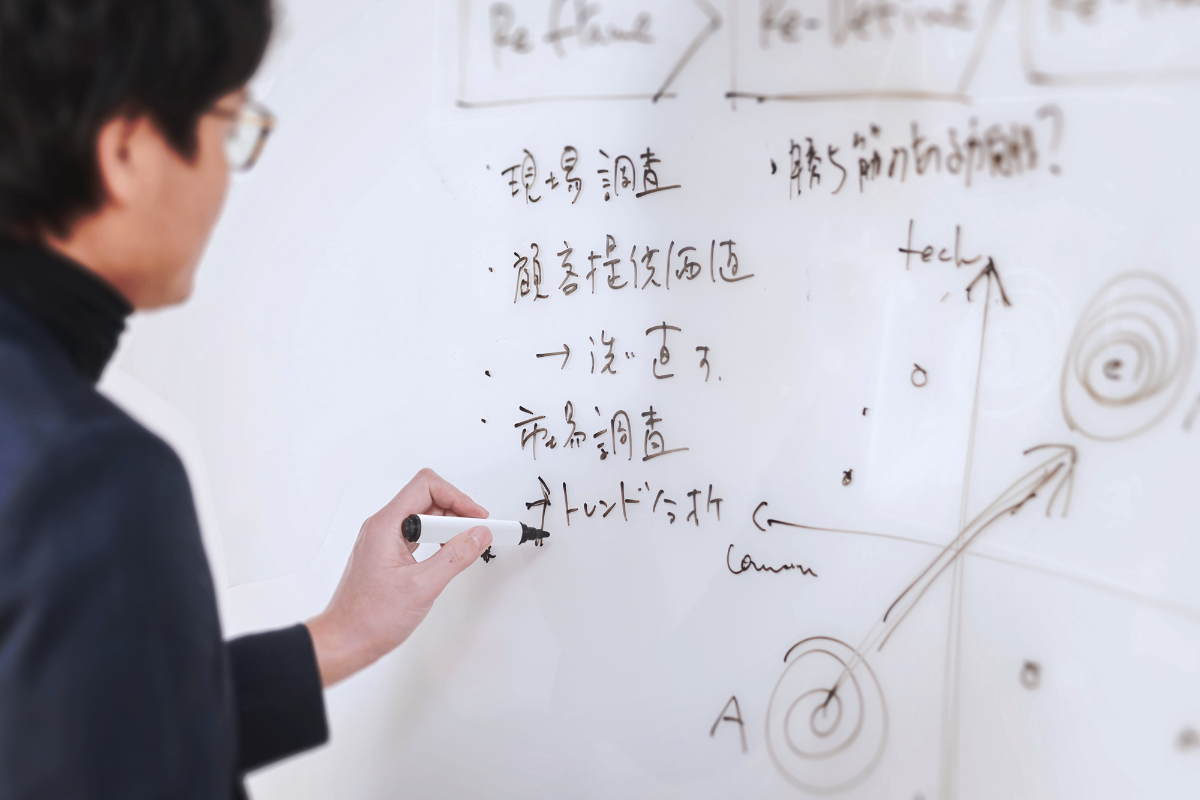 Re frame
Re-Define
Re-
・現場調査
・顧客提供価値
・→洗い直す.
・市場調査
→トレンド分析
・勝ち筋の
tech
Common
e
A